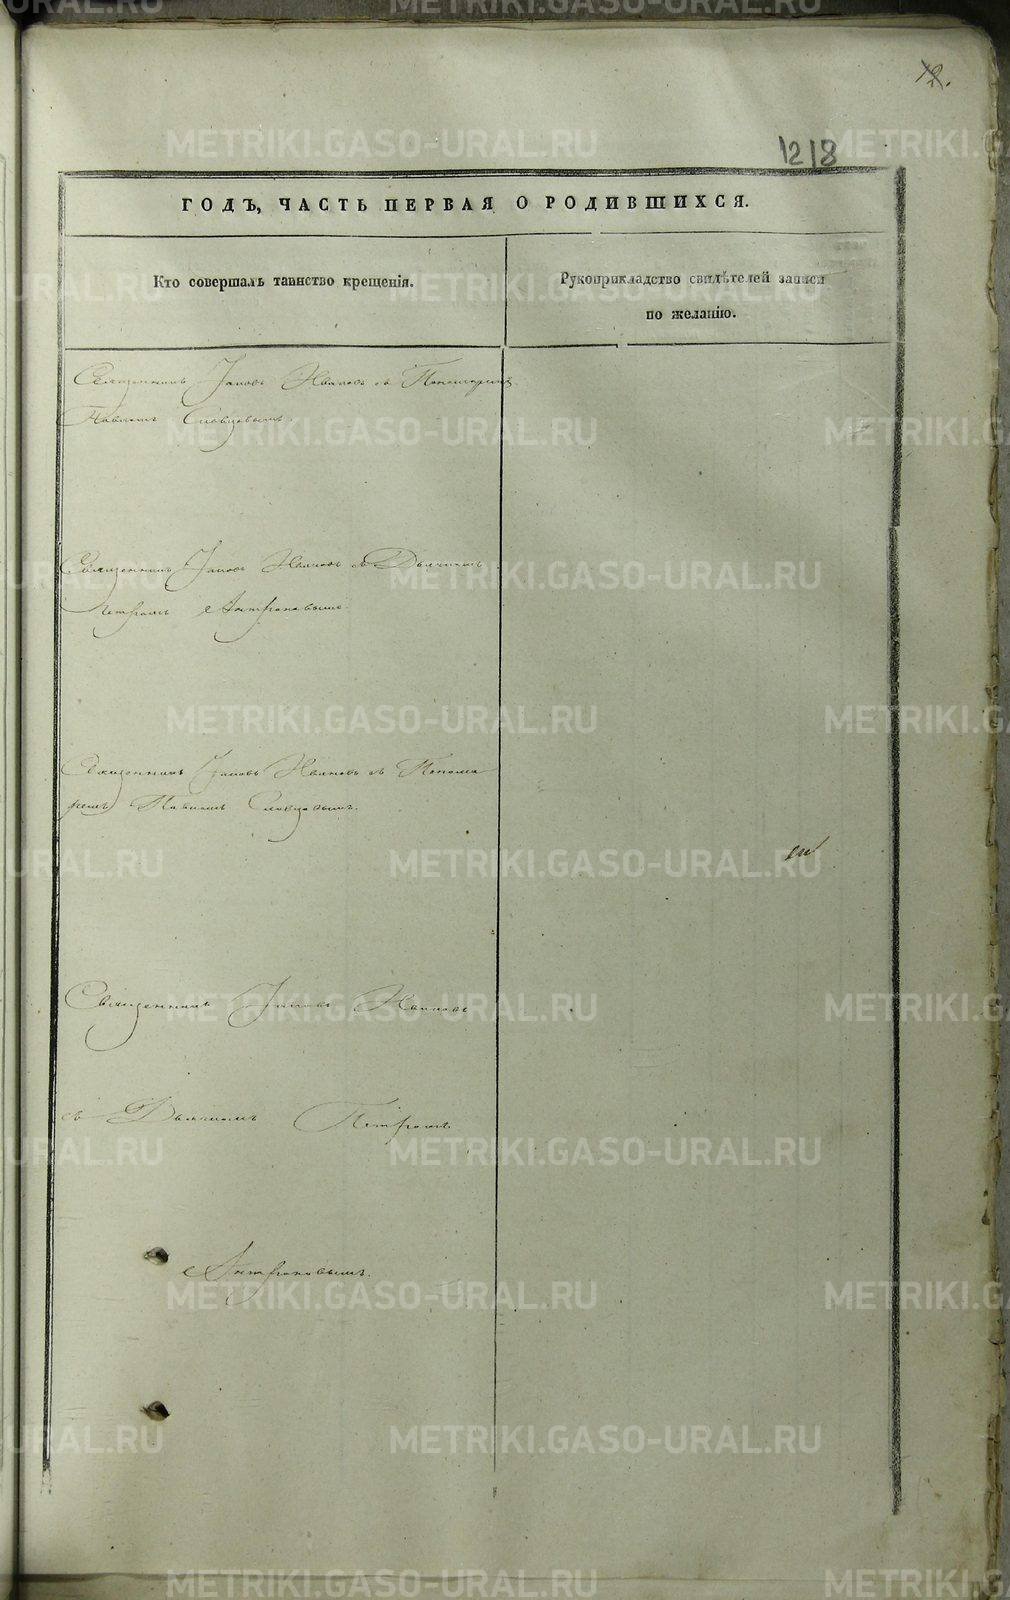 12.
1218
ГОДЪ, ЧАСТЬ ПЕРВАЯ О РОДИВШИХСЯ.
Кто совершалъ таинство крещенія.
Рукоприкладство свидѣтелей записи
по желанію.
Священникъ Іаковъ Ивановъ съ Пономаремъ
Павломъ Словцовымъ.
Священникъ Іаковъ Ивановъ съ Дьячкомъ
Петромъ Антроповымъ.
Священникъ Іаковъ Ивановъ съ Понома
ремъ Павломъ Словцовымъ.
Священникъ Іаковъ Ивановъ
съ Дьячкомъ Петромъ
Антроповымъ.
METRIKI.GASO-URAL.RU